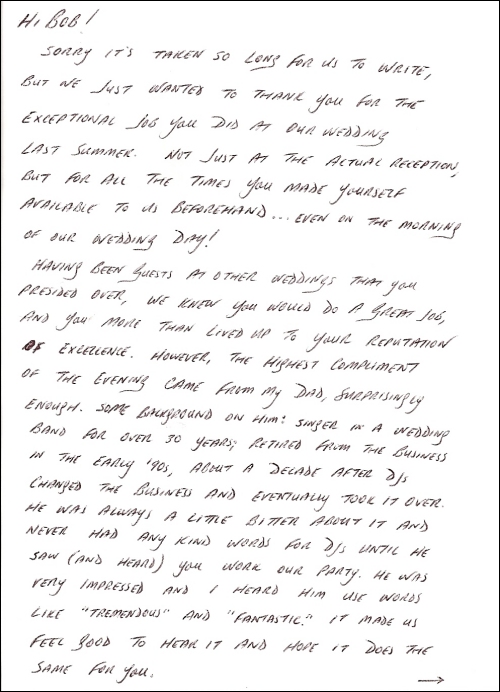 HI BOB!
SORRY IT'S TAKEN SO LONG FOR US TO WRITE,
BUT WE JUST WANTED TO THANK YOU FOR THE
EXCEPTIONAL JOB YOU DID AT OUR WEDDING
LAST SUMMER. NOT JUST AT THE ACTUAL RECEPTION,
BUT FOR ALL THE TIMES YOU MADE YOURSELF
AVAILABLE TO US BEFOREHAND... EVEN ON THE MORNING
OF OUR WEDDING DAY!
HAVING BEEN GUESTS AT OTHER WEDDINGS THAT YOU
PRESIDED OVER, WE KNEW YOU WOULD DO A GREAT JOB,
AND YOU MORE THAN LIVED UP TO YOUR REPUTATION
OF EXCELLENCE. HOWEVER, THE HIGHEST COMPLIMENT
OF THE EVENING CAME FROM MY DAD, SURPRISINGLY
ENOUGH. SOME BACKGROUND ON HIM: SINGER IN A WEDDING
BAND FOR OVER 30 YEARS; RETIRED FROM THE BUSINESS
IN THE EARLY '90s, ABOUT A DECADE AFTER DJs
CHANGED THE BUSINESS AND EVENTUALLY TOOK IT OVER.
HE WAS ALWAYS A LITTLE BITTER ABOUT IT AND
NEVER HAD ANY KIND WORDS FOR DJs UNTIL HE
SAW (AND HEARD) YOU WORK OUR PARTY. HE WAS
VERY IMPRESSED AND I HEARD HIM USE WORDS
LIKE "TREMENDOUS" AND "FANTASTIC." IT MADE US
FEEL GOOD TO HEAR IT AND HOPE IT DOES THE
SAME FOR YOU. →